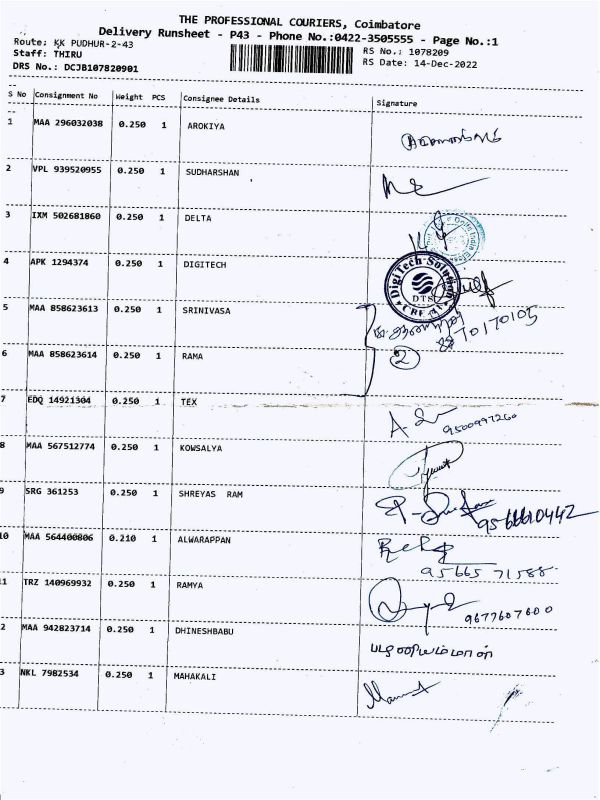 THE PROFESSIONAL COURIERS, Coimbatore
Delivery Runsheet - P43 - Phone No.:0422-3505555 - Page No.:1
Route: KK PUDHUR-2-43
RS No.: 1078209
Staff: THIRU
RS Date: 14-Dec-2022
DRS No.: DCJB107820901
S No Consignment No Weight PCS Consignee Details Signature
1 MAA 296032038 0.250 1 AROKIYA
2 VPL 939520955 0.250 1 SUDHARSHAN
3 IXM 502681860 0.250 1 DELTA
4 APK 1294374 0.250 1 DIGITECH
DigiTech Solution
DTS
5 MAA 858623613 0.250 1 SRINIVASA
6 MAA 858623614 0.250 1 RAMA
2
7 EDQ 14921304 0.250 1 TEX
9500997260
8 MAA 567512774 0.250 1 KOWSALYA
9 SRG 361253 0.250 1 SHREYAS RAM
9566610442
10 MAA 564400806 0.210 1 ALWARAPPAN
95665 71588
11 TRZ 140969932 0.250 1 RAMYA
9677607600
2 MAA 942823714 0.250 1 DHINESHBABU
3 NKL 7982534 0.250 1 MAHAKALI